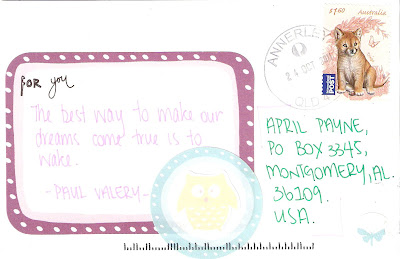 FOR you
The best way to make our
dreams come true is to
wake.
-PAUL VALERY-
$1.60 Australia
POST
ANNERLEY
24 OCT
QLD
APRIL PAYNE,
PO BOX 3345,
MONTGOMERY, AL.
36109.
USA.